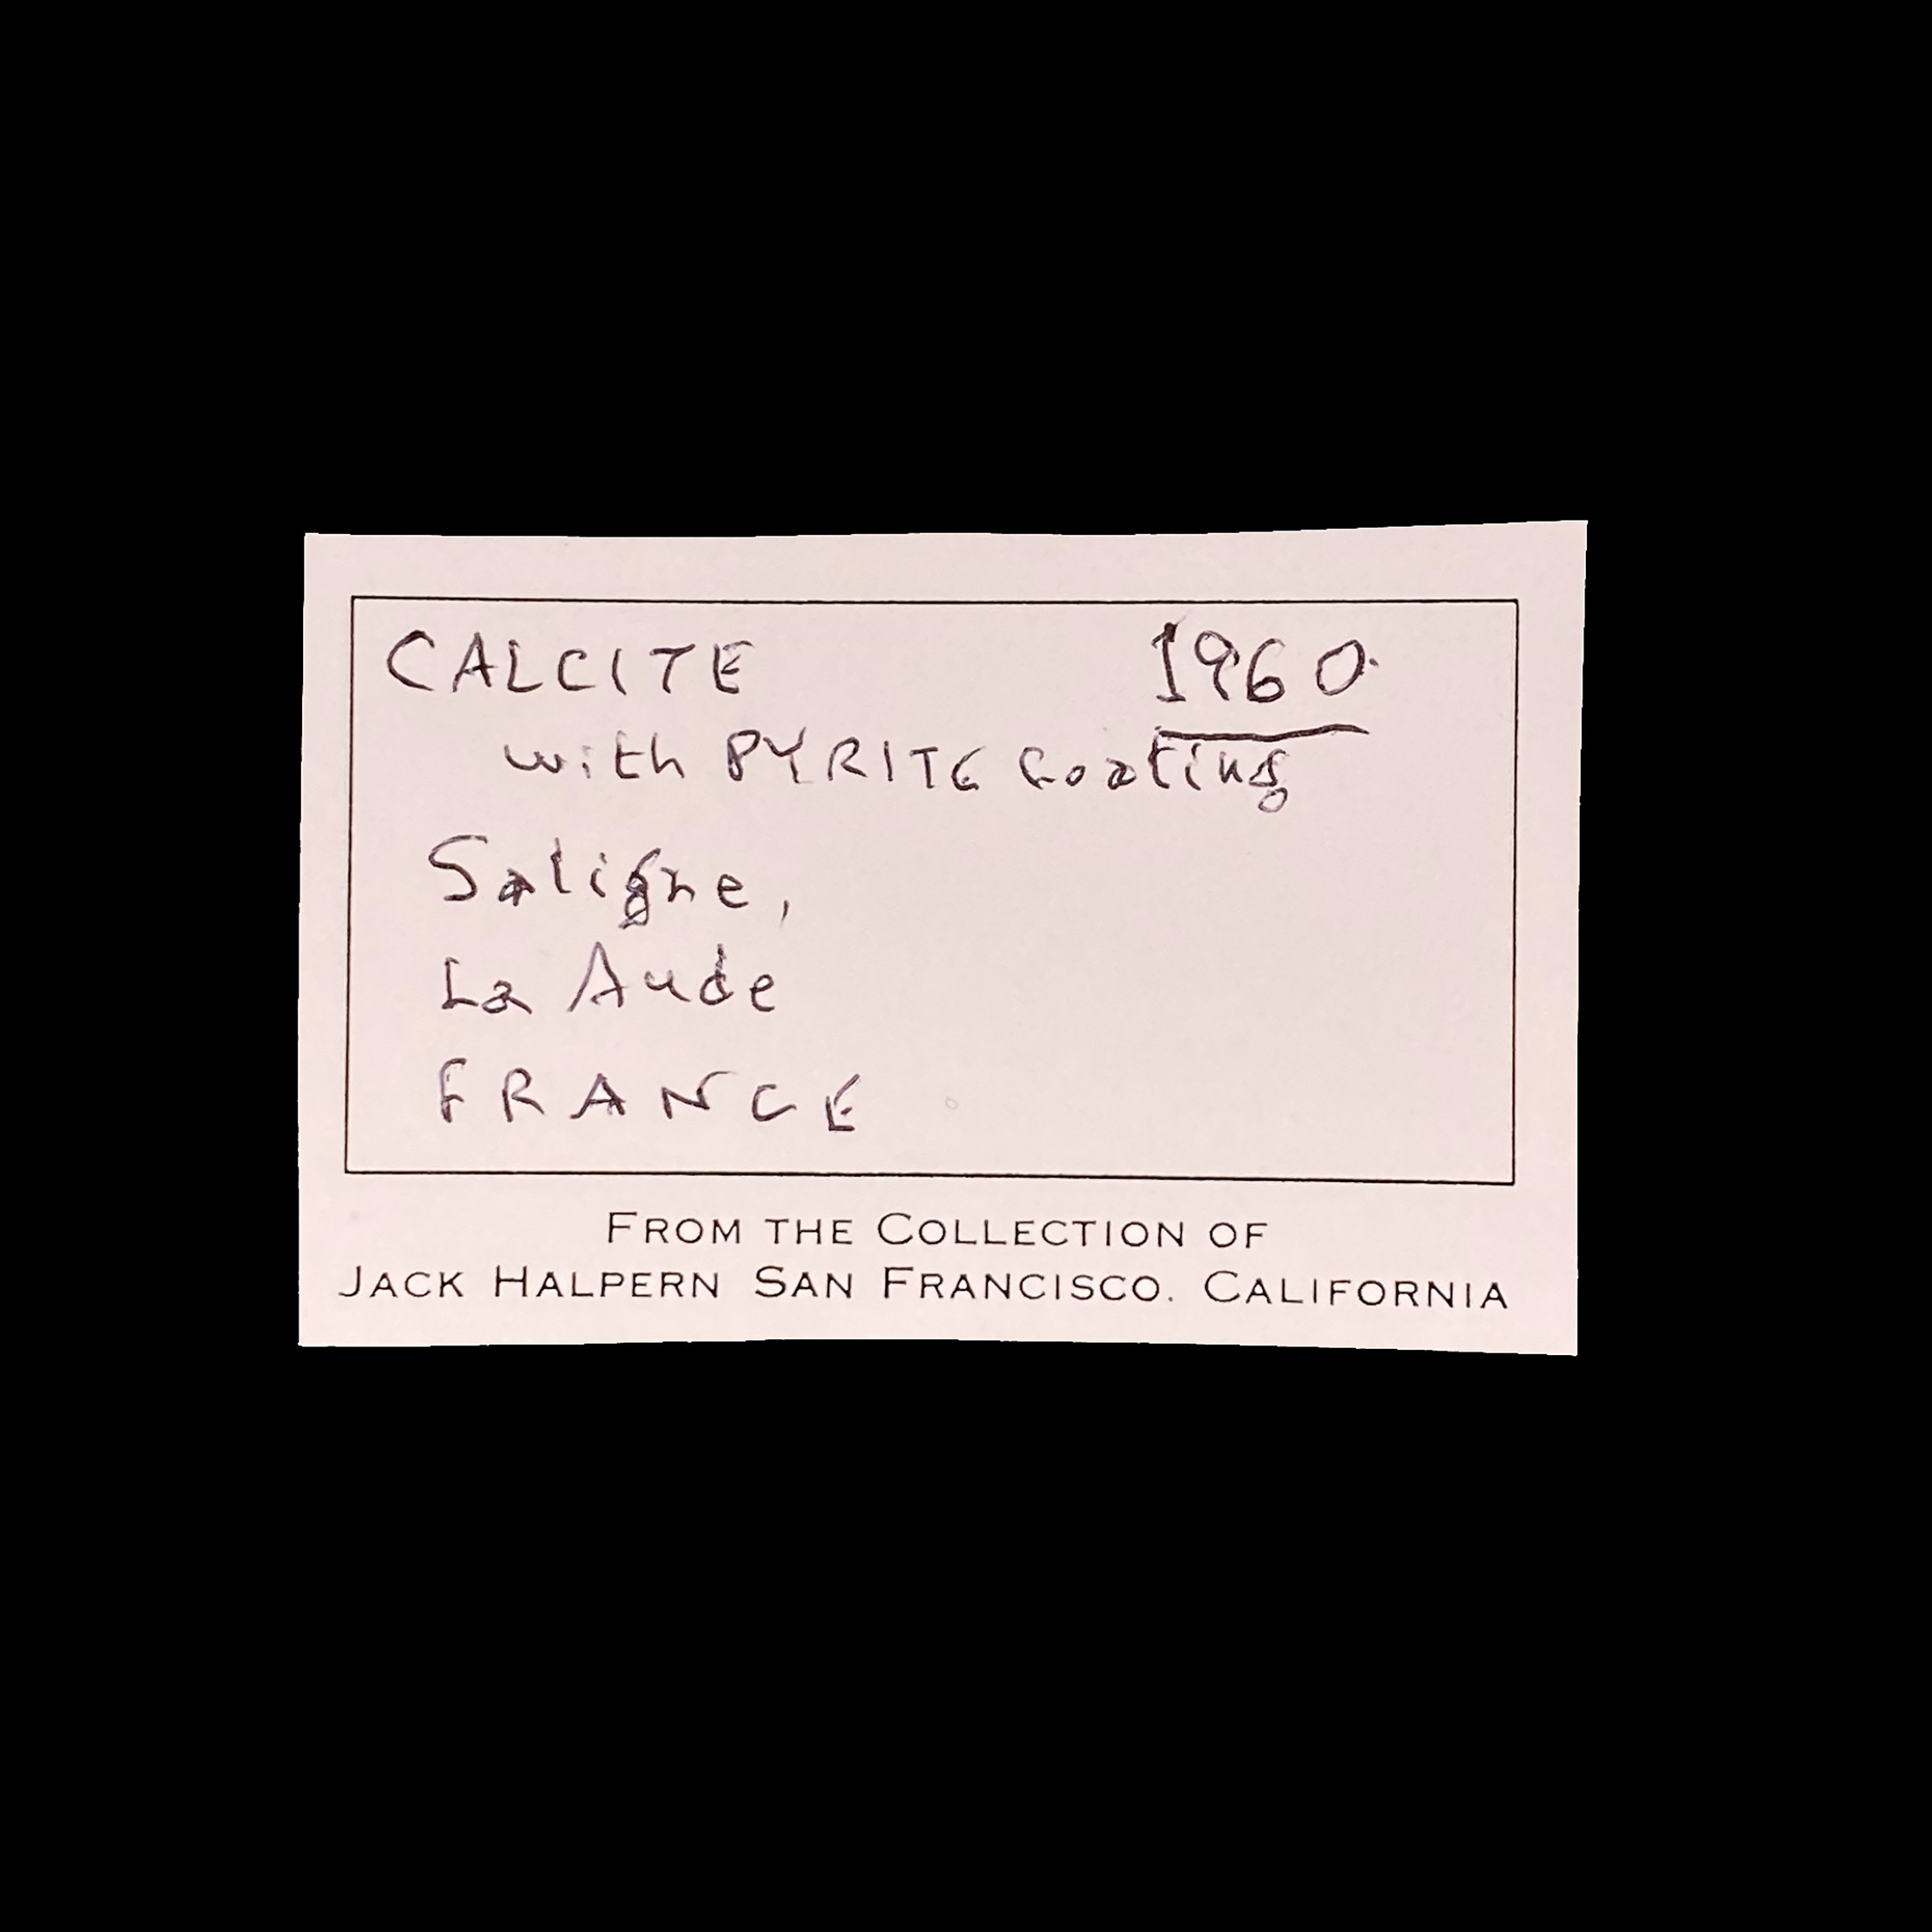 CALCITE 1960
with PYRITE Coating
Saligne,
La Aude
FRANCE
FROM THE COLLECTION OF
JACK HALPERN SAN FRANCISCO. CALIFORNIA